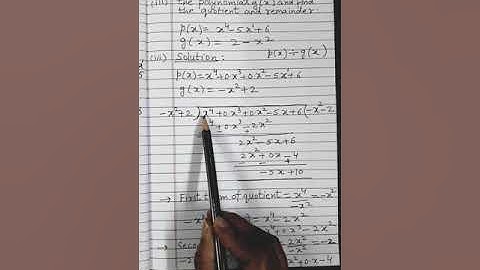 (iii) the polynomial g(x) and find
the quotient and remainder
p(x) = x⁴-5x+6
g(x) = 2-x²
(iii) Solution: p(x) ÷ g(x)
p(x) = x⁴+0x³+0x²-5x+6
g(x) = -x²+2
-x²+2)x⁴+0x³+0x²-5x+6(-x²-2
x⁴+0x³-2x²
- +
2x²-5x+6
2x²+0x-4
- +
-5x+10
→ First term of quotient = x⁴/-x² = -x²
x⁴-2x²
x⁴+0x³-2x²
→ Seco 2x²/-x² = -2
x²+0x-4